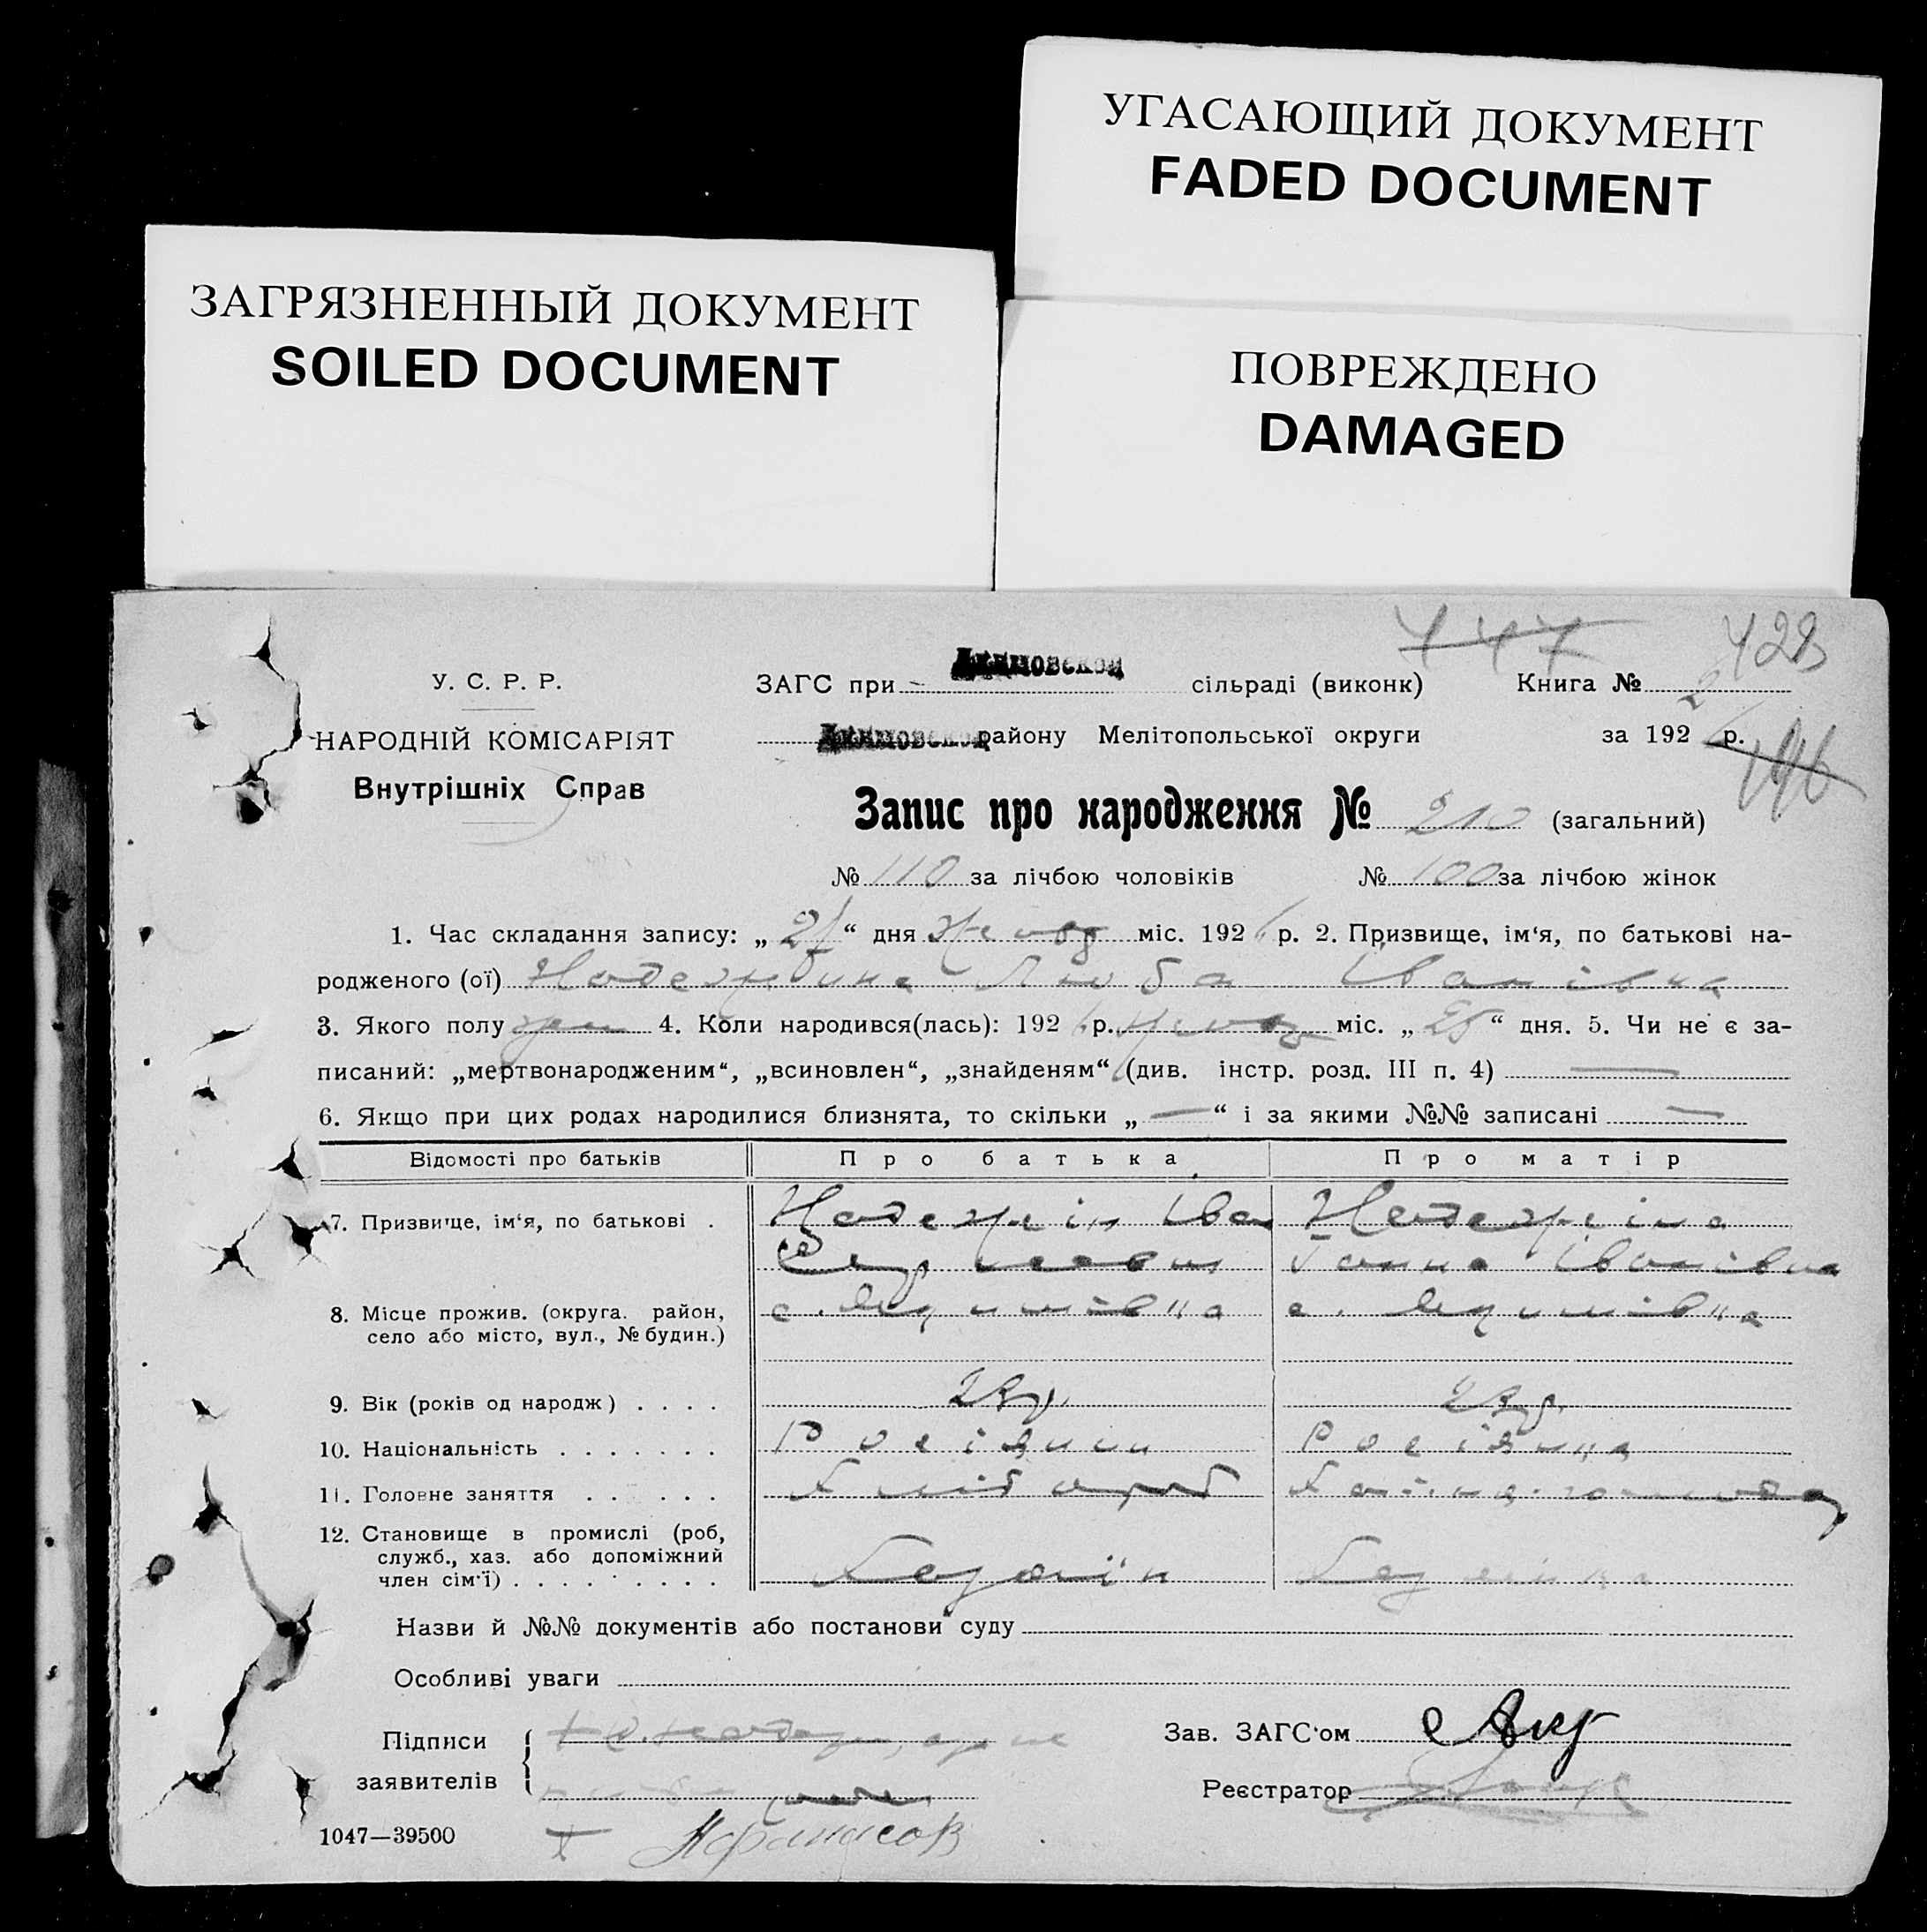 УГАСАЮЩИЙ ДОКУМЕНТ
FADED DOCUMENT
ЗАГРЯЗНЕННЫЙ ДОКУМЕНТ
SOILED DOCUMENT
ПОВРЕЖДЕНО
DAMAGED
747 428
У. С. Р. Р. ЗАГС при Акимовской сільраді (виконк) Книга № 2
НАРОДНІЙ КОМІСАРІЯТ Акимовской району Мелітопольської округи за 1926 р.
Внутрішніх Справ
196
Запис про народження № 210 (загальний)
№ 110 за лічбою чоловіків № 100 за лічбою жінок
1. Час складання запису: „ “ дня жовт міс. 1926 р. 2. Призвище, ім‘я, по батькові на-
родженого (ої) Надеждина Люба Іванівна
3. Якого полу жін 4. Коли народився(лась): 1926 р. жовт міс. „ “ дня. 5. Чи не є за-
писаний: „мертвонародженим“, „всиновлен“, „знайденям“ (див. інстр. розд. III п. 4) —
6. Якщо при цих родах народилися близнята, то скільки „—“ і за якими №№ записані —
Відомості про батьків Про батька Про матір
7. Призвище, ім‘я, по батькові . Іван
Ганна Іванівна
8. Місце прожив. (округа. район, с. Якимівка с. Якимівка
село або місто, вул., № будин.)
9. Вік (років од народж) . . . . 23р. 23р.
10. Національність . . . . . . . Росіянин Росіянка
11. Головне заняття . . . . . . Хлібороб
12. Становище в промислі (роб,
служб., хаз. або допоміжний
член сім‘ї) . . . . . . . . . Хазяїн Хазяйка
Назви й №№ документів або постанови суду
Особливі уваги
Підписи Зав. ЗАГС‘ом
заявителів Реєстратор
1047—39500 Афанасов